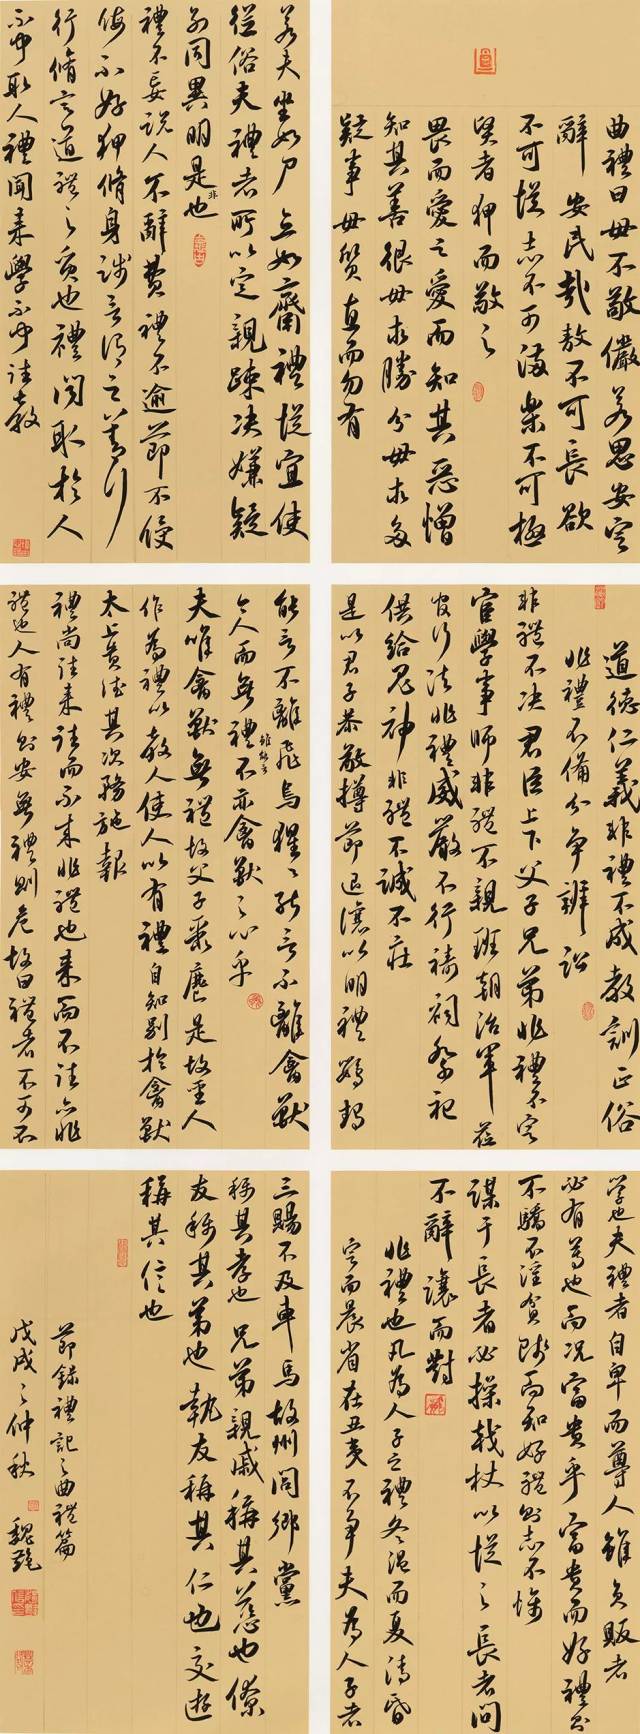 曲禮曰毋不敬儼若思安定
辭 安民哉敖不可長欲
不可從志不可滿樂不可極
賢者狎而敬之
畏而愛之愛而知其惡憎
知其善很毋求勝分毋求多
疑事毋質直而勿有
若夫坐如尸 立如齊禮從宜使
從俗夫禮者所以定親疎决嫌疑
別同異明是非也
禮不妄說人不辭費禮不逾節不侵
侮不好狎脩身踐言謂之善行
行脩言道禮之質也禮聞取於人
不聞取人禮聞來學不聞往教
道德仁義非禮不成教訓正俗
非禮不備分爭辨訟
非禮不决君臣上下父子兄弟非禮不定
宦學事師非禮不親班朝治軍莅
官行法非禮威嚴不行禱祠祭祀
供給鬼神非禮不誠不莊
是以君子恭敬撙節退讓以明禮鸚鵡
能言不離飛鳥猩猩能言不離禽獸
今人而無禮雖能言不亦禽獸之心乎
夫唯禽獸無禮故父子聚麀是故聖人
作為禮以教人使人以有禮自知別於禽獸
太上貴德其次務施報
禮尚往來往而不來非禮也來而不往亦非
禮也人有禮則安無禮則危故曰禮者不可不
學也夫禮者自卑而尊人雖負販者
必有尊也而況富貴乎富貴而好禮則
不驕不淫貧賤而知好禮則志不懾
謀于長者必操杖以從之長者問
不辭讓而對
非禮也凡為人子之禮冬溫而夏清昏
定而晨省在丑夷不爭夫為人子者
三賜不及車馬故州閭鄉黨
稱其孝也兄弟親戚稱其慈也僚
友稱其弟也執友稱其仁也交遊
稱其信也
節錄禮記之曲禮篇
戊戌之仲秋 魏艷